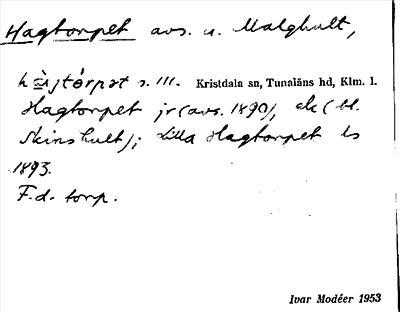 Hagtorpet avs. u. Malghult,
hàgtórpət s. III. Kristdala sn, Tunaläns hd, Klm. l.
Hagtorpet jr (avs. 1890), ek (bl.
Skinshult); Lilla Hagtorpet ls
1893.
F.d. torp.
Ivar Modéer 1953